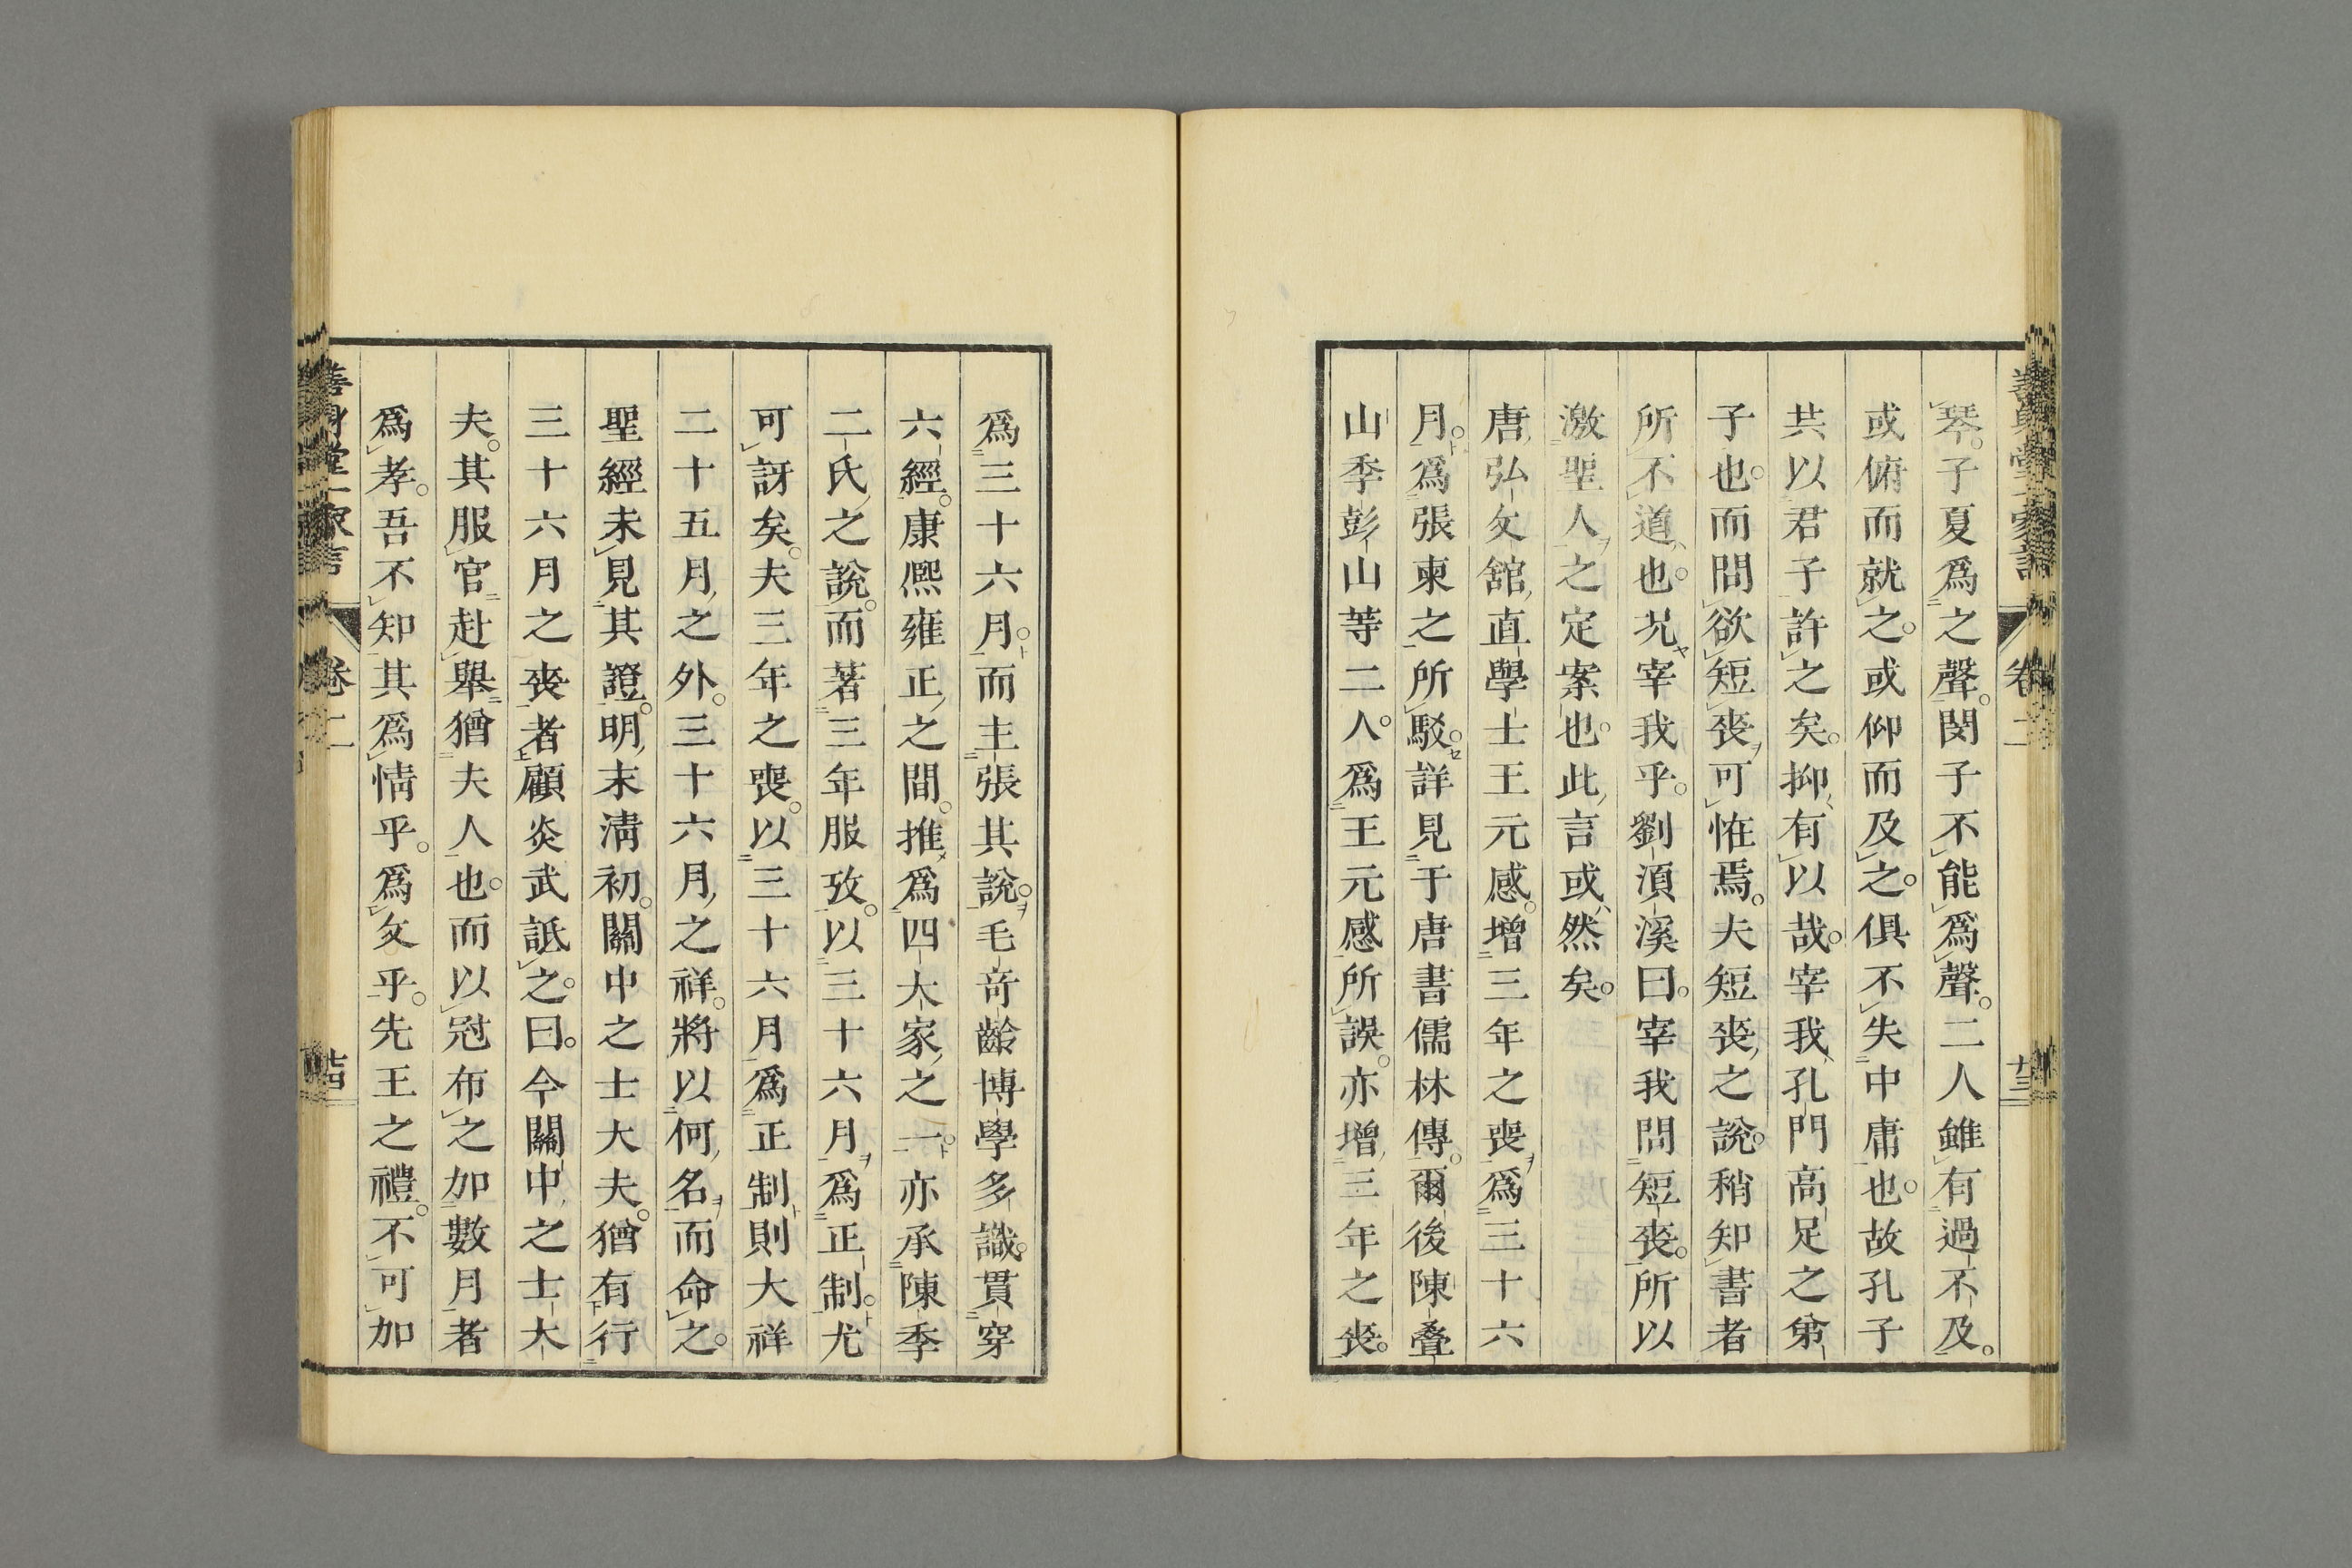 琴。子夏爲之聲。閔子不能爲聲。二人雖有過不及。
或俯而就之。或仰而及之。俱不失中庸也。故孔子
共以君子許之矣。抑有以哉。宰我孔門高足之弟
子也。而問欲短喪可恠焉。夫短喪之說。稍知書者
所不道也。况宰我乎。劉湏溪曰。宰我問短喪。所以
激聖人之定案也。此言或然矣。
唐弘文舘直學士王元感。增三年之喪爲三十六
月。爲張柬之所駁。詳見于唐書儒林傳。爾後陳疊
山季彭山等二人。爲王元感所誤。亦增三年之喪。
爲三十六月。而主張其說。毛竒齡博學多識。貫穿
六經。康熈雍正之間。推爲四大家之一。亦承陳季
二氏之說。而著三年服攷。以三十六月爲正制。尤
可訝矣。夫三年之喪。以三十六月爲正制則大祥
二十五月之外。三十六月之祥。將以何名而命之。
聖經未見其證。明末淸初。關中之士大夫。猶有行
三十六月之喪者。顧炎武詆之。曰。今關中之士大
夫。其服官赴舉猶夫人也。而以冠布之加數月者
爲孝。吾不知其爲情乎。爲文乎。先王之禮。不可加
卷二